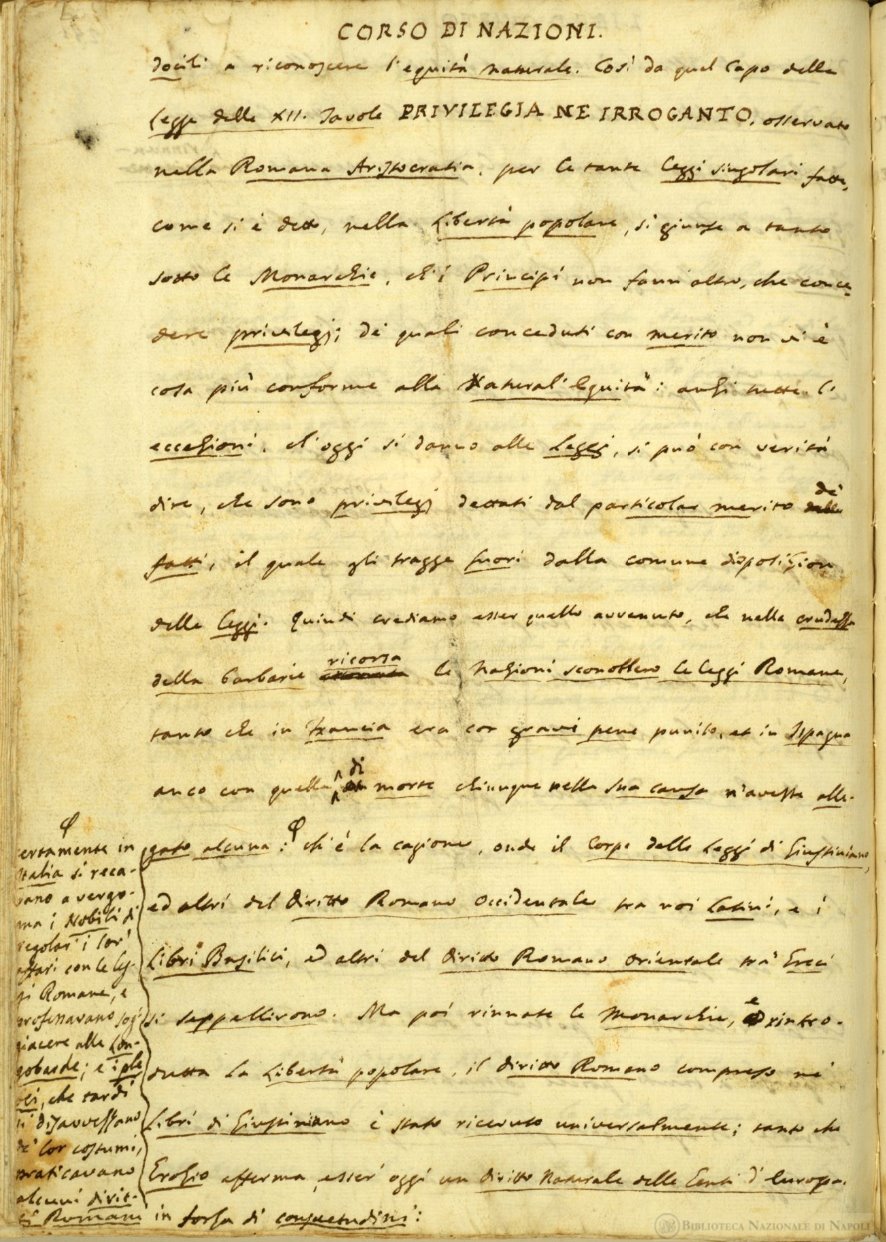 CORSO DI NAZIONI.
docili a riconoscere l'equità naturale. Così da quel Capo della
Legge delle XII. Tavole PRIVILEGIA NE IRROGANTO, osservato
nella Romana Aristocratia, per le tante leggi singolari fatte,
come si è detto, nella Libertà popolare, si giunse a tanto
sotto le Monarchie, ch'i Principi non fann'altro, che conce-
dere privilegj; de' quali conceduti con merito non vi è
cosa più conforme alla Natural' Equità: anzi tutte l'
eccezioni, ch'oggi si danno alle Leggj, si può con verità
dire, che sono privilegj dettati dal particolar merito de'
fatti, il quale gli tragge fuori dalla comune disposizion
delle Leggj. Quindi crediamo esser quello avvenuto, che nella crudezza
della barbarie ricorsa le Nazioni sconobbero le leggi Romane,
tanto che in Francia era con gravi pene punito, et in Ispagna
anco con quella di morte chiunque nella sua causa n'avesse alle-
gato alcuna: ch'è la cagione, onde il Corpo delle Leggi di Giustiniano,
ed altri del Diritto Romano Occidentale tra noi Latini, e i
Libri Basilici, ed altri del Diritto Romano Orientale tra' Greci
si seppellirono. Ma poi rinnate le Monarchie, e rintro-
dutta la Libertà popolare, il diritto Romano compreso ne'
Libri di Giustiniano è stato ricevuto universalmente; tanto che
Grozio afferma, esser' oggi un diritto Naturale delle Genti d'Europa.
ertamente in
Italia si reca-
vano a vergo-
gna i Nobili di
regolar' i lor'
affari con le leg-
gi Romane, e
professavano sog-
giacere alle Lon-
gobarde; e i ple
bei, che tardi
si disavvezzano
de' lor costumi,
praticavano
alcuni dirit-
ti Romani in forza di consuetudini:
BIBLIOTECA NAZIONALE DI NAPOLI